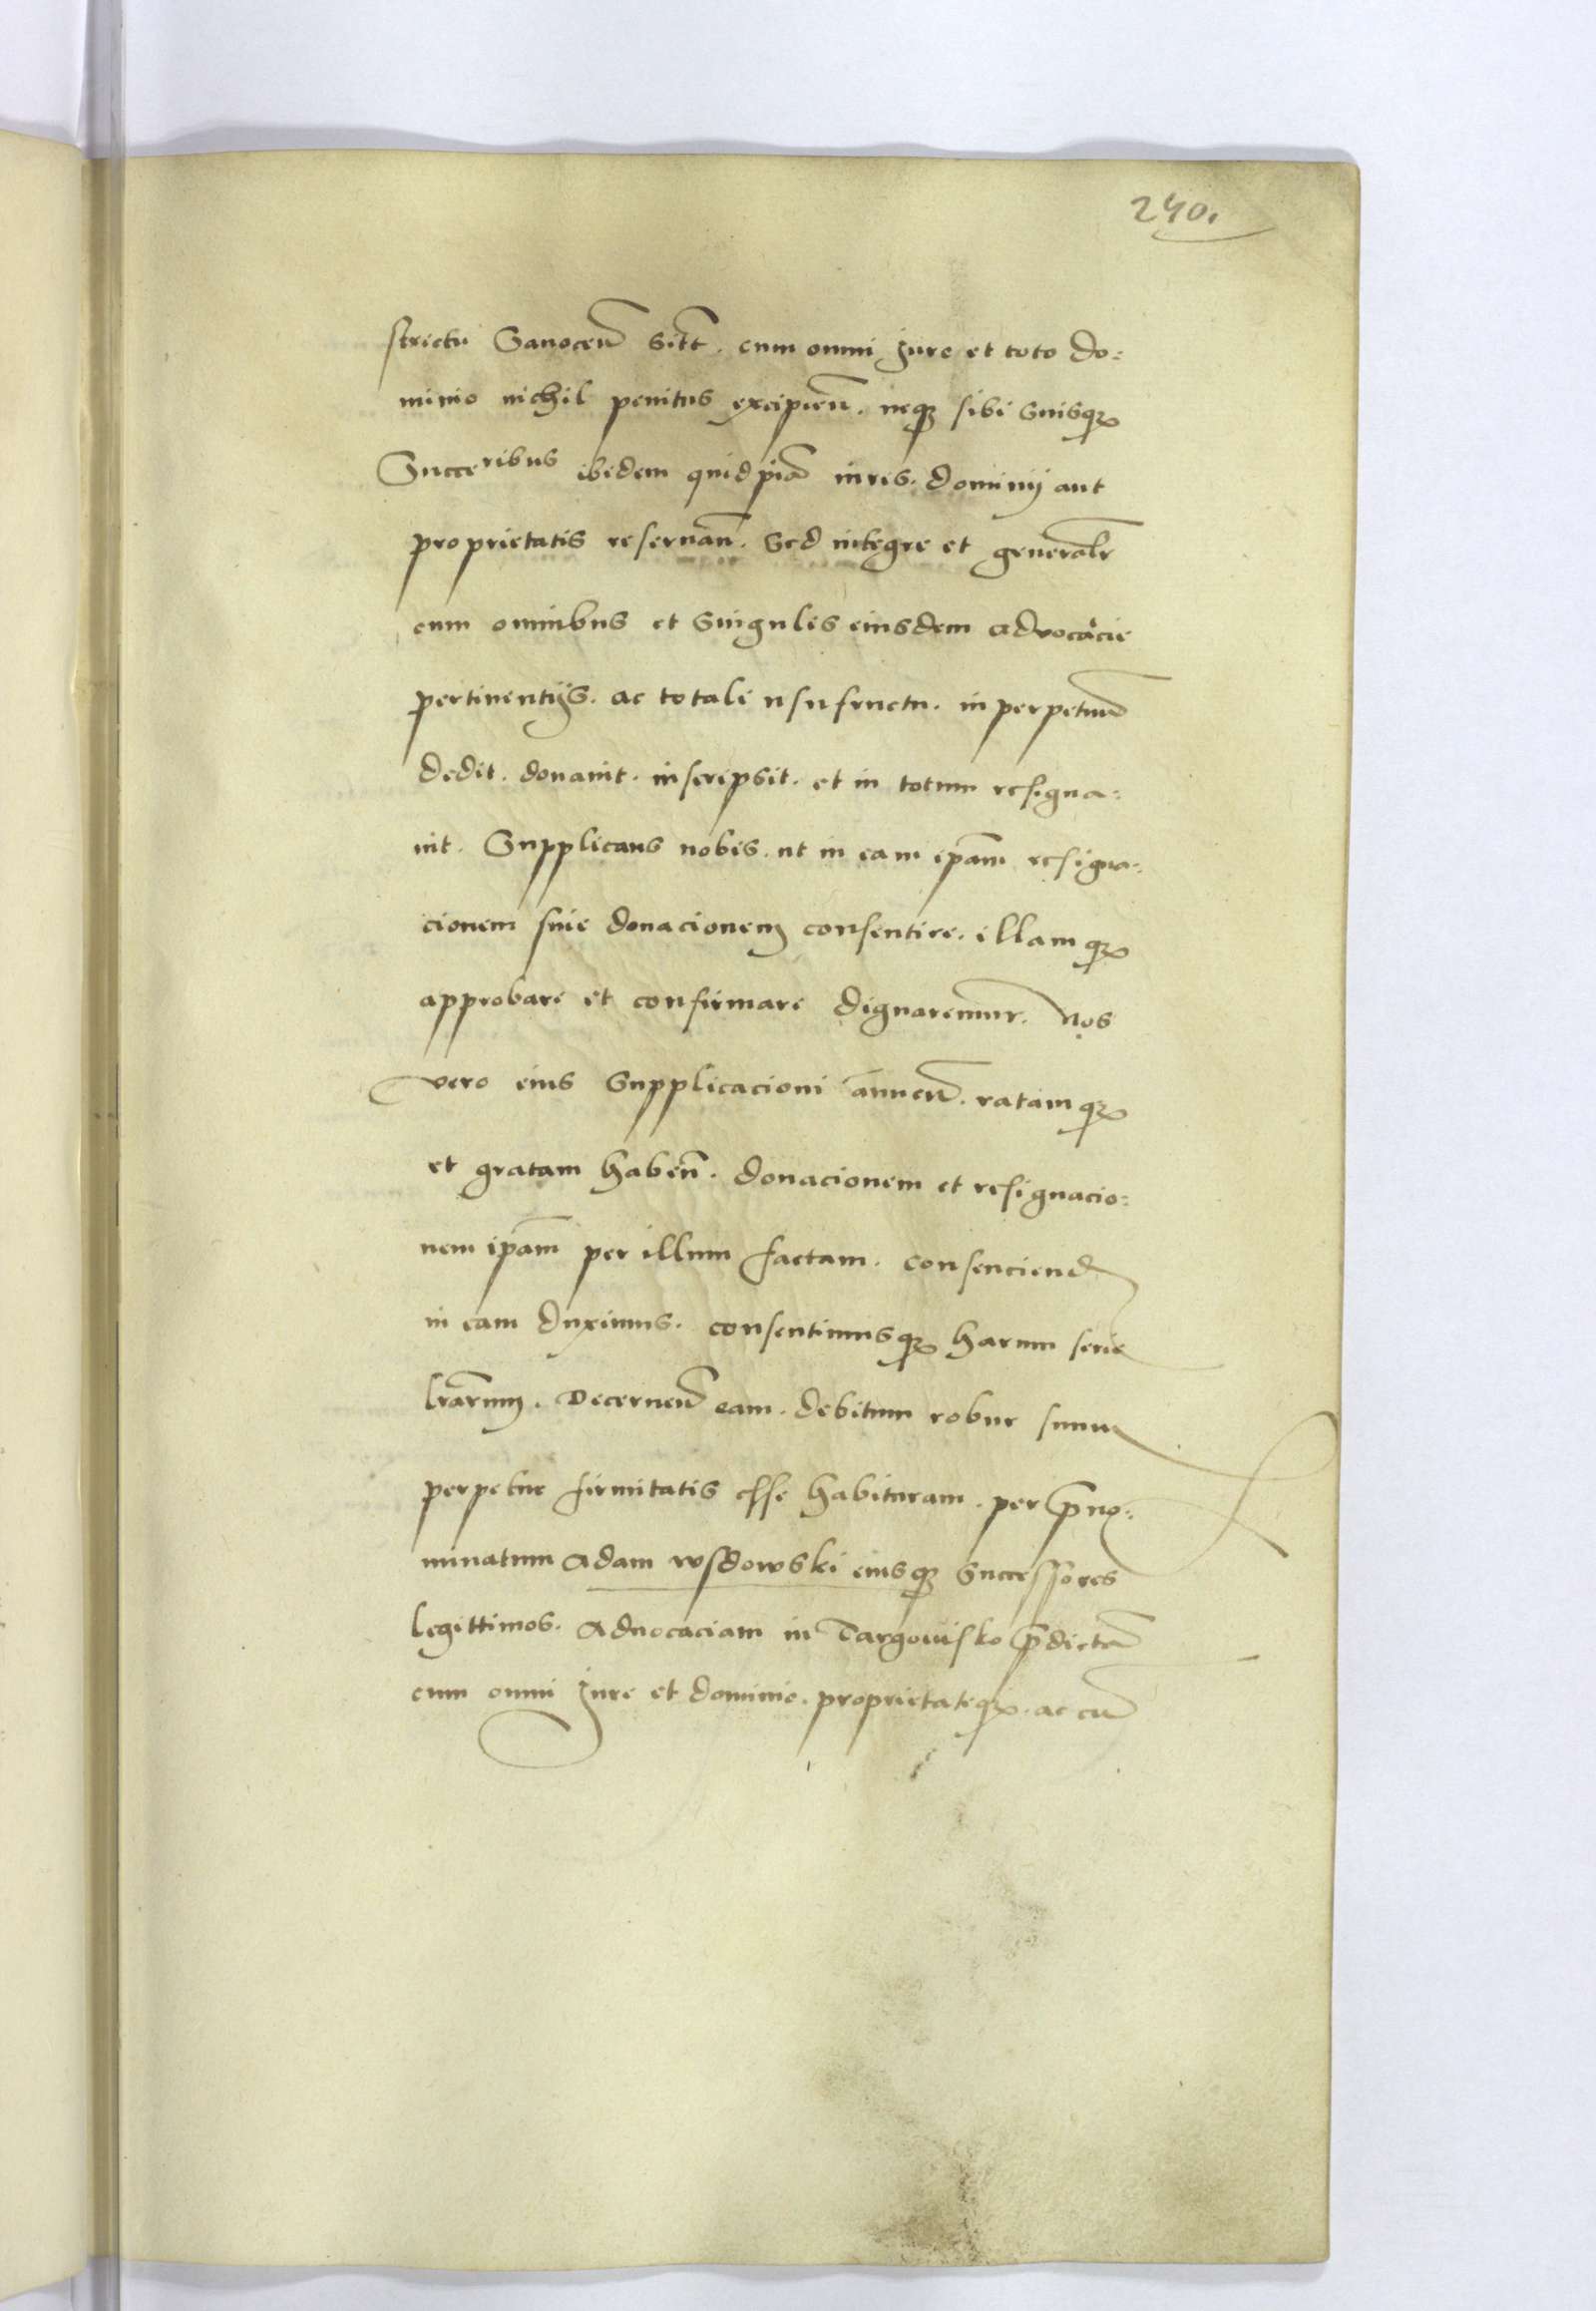 240.
strictu Sanoceñ sitt. cum omni Jure et toto do:
minio nichil penitus excipieñ. neqȝ sibi suisqȝ
Succeribus ibidem quidpiā iuris. dominij aut
proprietatis reseruañ. Sed integre et generalr̄
cum omnibus et singulis eiusdem advocacie
pertinentijs. ac totali usufructu. in perpetuū
dedit. donauit. inscripsit. et in totum resigna:
uit. Supplicans nobis. ut in eam ip̄am resigna:
cionem siue donacionem consentire. illamqȝ
approbare et confirmare dignaremur. Nos
vero eius supplicacioni annueñ. ratamqȝ
et gratam habeñ. donacionem et resignacio:
nem ip̄am per illum factam. consenciend
in eam duximus. consentimusqȝ harum serie
lr̄arum. Decerneñ eam. debitum robur suum
perpetue firmitatis esse habituram. per p̄no:
minatum Adam wsdowski eiusqȝ successores
legittimos. Aduocaciam in Targouisko p̄dictā
cum omni Jure et dominio. proprietateqȝ. ac cū